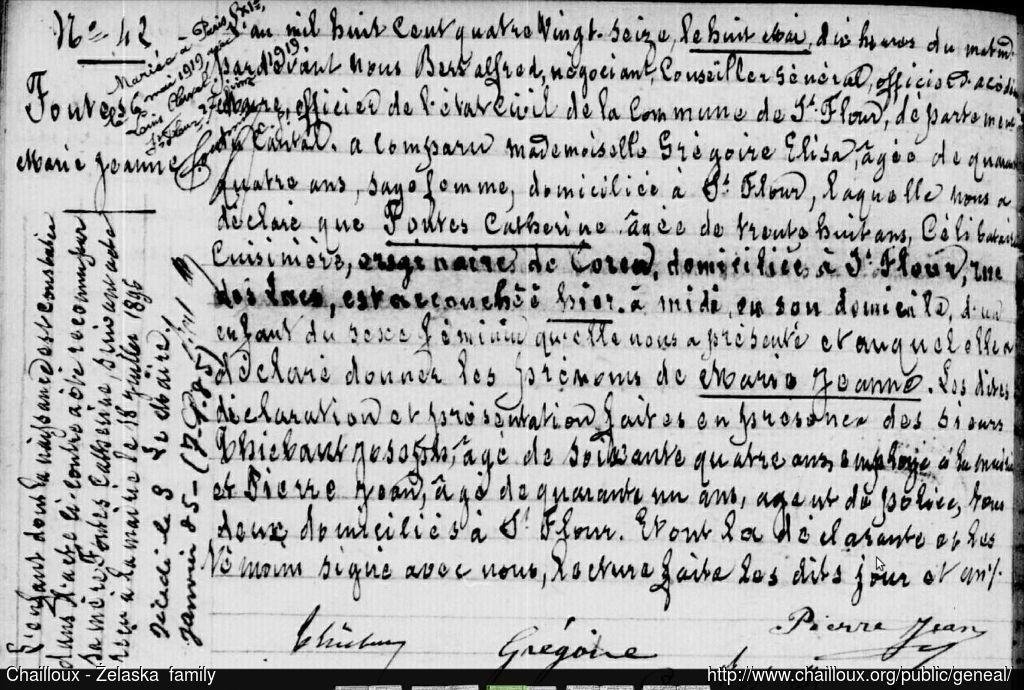 N° 42
Foutes
Marie Jeanne
Mariée à Paris, XIXe,
le 6 mai 1919, avec
Louis
St Flour,
1919.
L'an mil huit cent quatre vingt-seize, le huit Mai, dix heures du matin
pardevant nous Bers alfred, négociant, Conseiller Général, officier d'acadé
Maire, officier de l'état Civil de la Commune de St Flour, départeme
du Cantal. a comparu mademoiselle Grégoire Elisa, âgée de quaran
quatre ans, sage femme, domiciliée à St Flour, laquelle nous a
déclaré que Foutes Catherine âgée de trente huit ans, Célibatair
Cuisinière, originaire de Coren, domiciliée à St Flour, rue
des Lacs, est accouchée hier à midi, en son domicile, d'un
enfant du sexe féminin qu'elle nous a présenté et auquel elle a
déclaré donner les prénoms de Marie Jeanne. Les dites
déclaration et présentation faites en présence des sieurs
Thiebaut Joseph, âgé de soixante quatre ans, employé à la mairie
et Pierre Jean, âgé de quarante un ans, agent de police, tous
deux domiciliés à St Flour. Et ont la déclarante et les
témoins signé avec nous, lecture faite les dits jour et an %.
L'enfant dont la naissance est constatée
dans l'acte ci-contre a été reconnu par
sa mère Foutes Catherine suivant acte
reçu à la mairie le 18 juillet 1896
Le Maire,
Décédée le 3
janvier 85 - (7.1.85)
Grégoire
Pierre Jean
Chailloux - Żelaska family
http://www.chailloux.org/public/geneal/